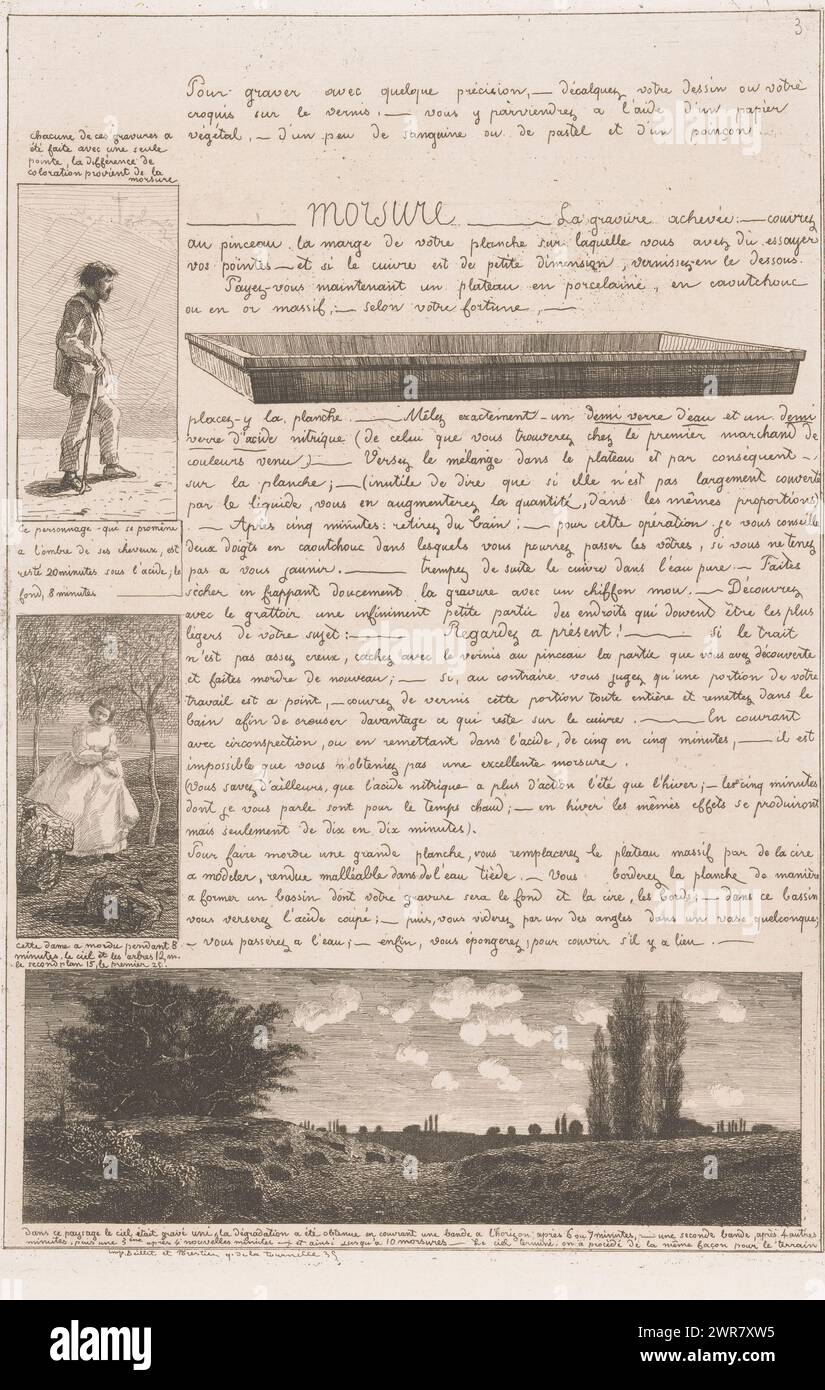 3
Pour graver avec quelque précision, — décalquez votre dessin ou votre
croquis sur le vernis. — vous y parviendrez a l'aide d'un papier
végétal, — d'un peu de sanguine ou de pastel et d'un poinçon.
chacune de ces gravures a
été faite avec une seule
pointe, la différence de
coloration provient de la
morsure
morsure — La gravure achevée: — couvrez
au pinceau la marge de votre planche sur laquelle vous avez dû essayer
vos pointes — et si le cuivre est de petite dimension, vernissez-en le dessous.
Payez-vous maintenant un plateau en porcelaine, en caoutchouc
ou en or massif; — selon votre fortune, —
placez-y la planche. — Mêlez exactement — un demi verre d'eau et un demi
verre d'acide nitrique (de celui que vous trouverez chez le premier marchand de
couleurs venu) — Versez le mélange dans le plateau et par conséquent —
sur la planche; — (inutile de dire que si elle n'est pas largement couverte
par le liquide, vous en augmenterez la quantité, dans les mêmes proportions)
— Après cinq minutes: retirez du bain: — pour cette opération je vous conseille
deux doigts en caoutchouc dans lesquels vous pourrez passer les vôtres, si vous ne tenez
pas a vous jaunir. — trempez de suite le cuivre dans l'eau pure — Faites
sècher en frappant doucement la gravure avec un chiffon mou. — Découvrez
avec le grattoir une infiniment petite partie des endroits qui doivent être les plus
légers de votre sujet: — Regardez a présent! — si le trait
n'est pas assez creux, cachez avec le vernis au pinceau la partie que vous avez découverte
et faites mordre de nouveau; — si, au contraire vous jugez qu'une portion de votre
travail est a point, — couvrez de vernis cette portion toute entière et remettez dans le
bain afin de creuser davantage ce qui reste sur le cuivre. — En couvrant
avec circonspection, ou en remettant dans l'acide, de cinq en cinq minutes, — il est
impossible que vous n'obteniez pas une excellente morsure.
(Vous savez d'ailleurs, que l'acide nitrique a plus d'action l'été que l'hiver; — les cinq minutes
dont je vous parle sont pour le temps chaud; — en hiver les mêmes effets se produiront
mais seulement de dix en dix minutes).
Pour faire mordre une grande planche, vous remplacerez le plateau massif par de la cire
a modeler, rendue malléable dans de l'eau tiède. — Vous borderez la planche de manière
a former un bassin dont votre gravure sera le fond et la cire, les bords; — dans ce bassin
vous verserez l'acide coupé; — puis, vous viderez par un des angles dans un vase quelconque;
— vous passerez a l'eau; — enfin, vous épongerez; pour couvrir s'il y a lieu. —
Ce personnage — que se promène
a l'ombre de ses cheveux, est
resté 20 minutes sous l'acide; le
fond, 8 minutes
cette dame a mordu pendant 8
minutes, le ciel et les arbres 12, m.
le second plan 15, le premier 25.
dans ce paysage le ciel était gravé uni, la dégradation a été obtenue en couvrant une bande a l'horizon après 6 ou 7 minutes, — une seconde bande, après 4 autres
minutes, puis une 3ème après 4 nouvelles minutes — et ainsi jusqu'a 10 morsures — Le ciel terminé, on a procédé de la même façon pour le terrain
imp. Delâtre et r. de la tournelle 35
alamy
alamy
Image ID: 2WR7XW5
www.alamy.com